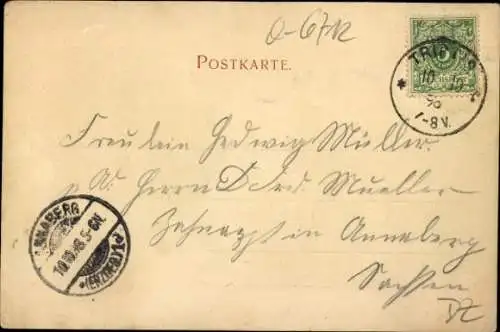 O-6712
POSTKARTE.
TRIPTIS
10 10
98
7-8V.
Freulein Hedwig Müller.
p. A: Herrn D Frd. Mueller
Zahnarzt in Annaberg
Sachsen
DZ
ANNABERG
10.10.98.5-6N.
*(ERZGEB.)1*